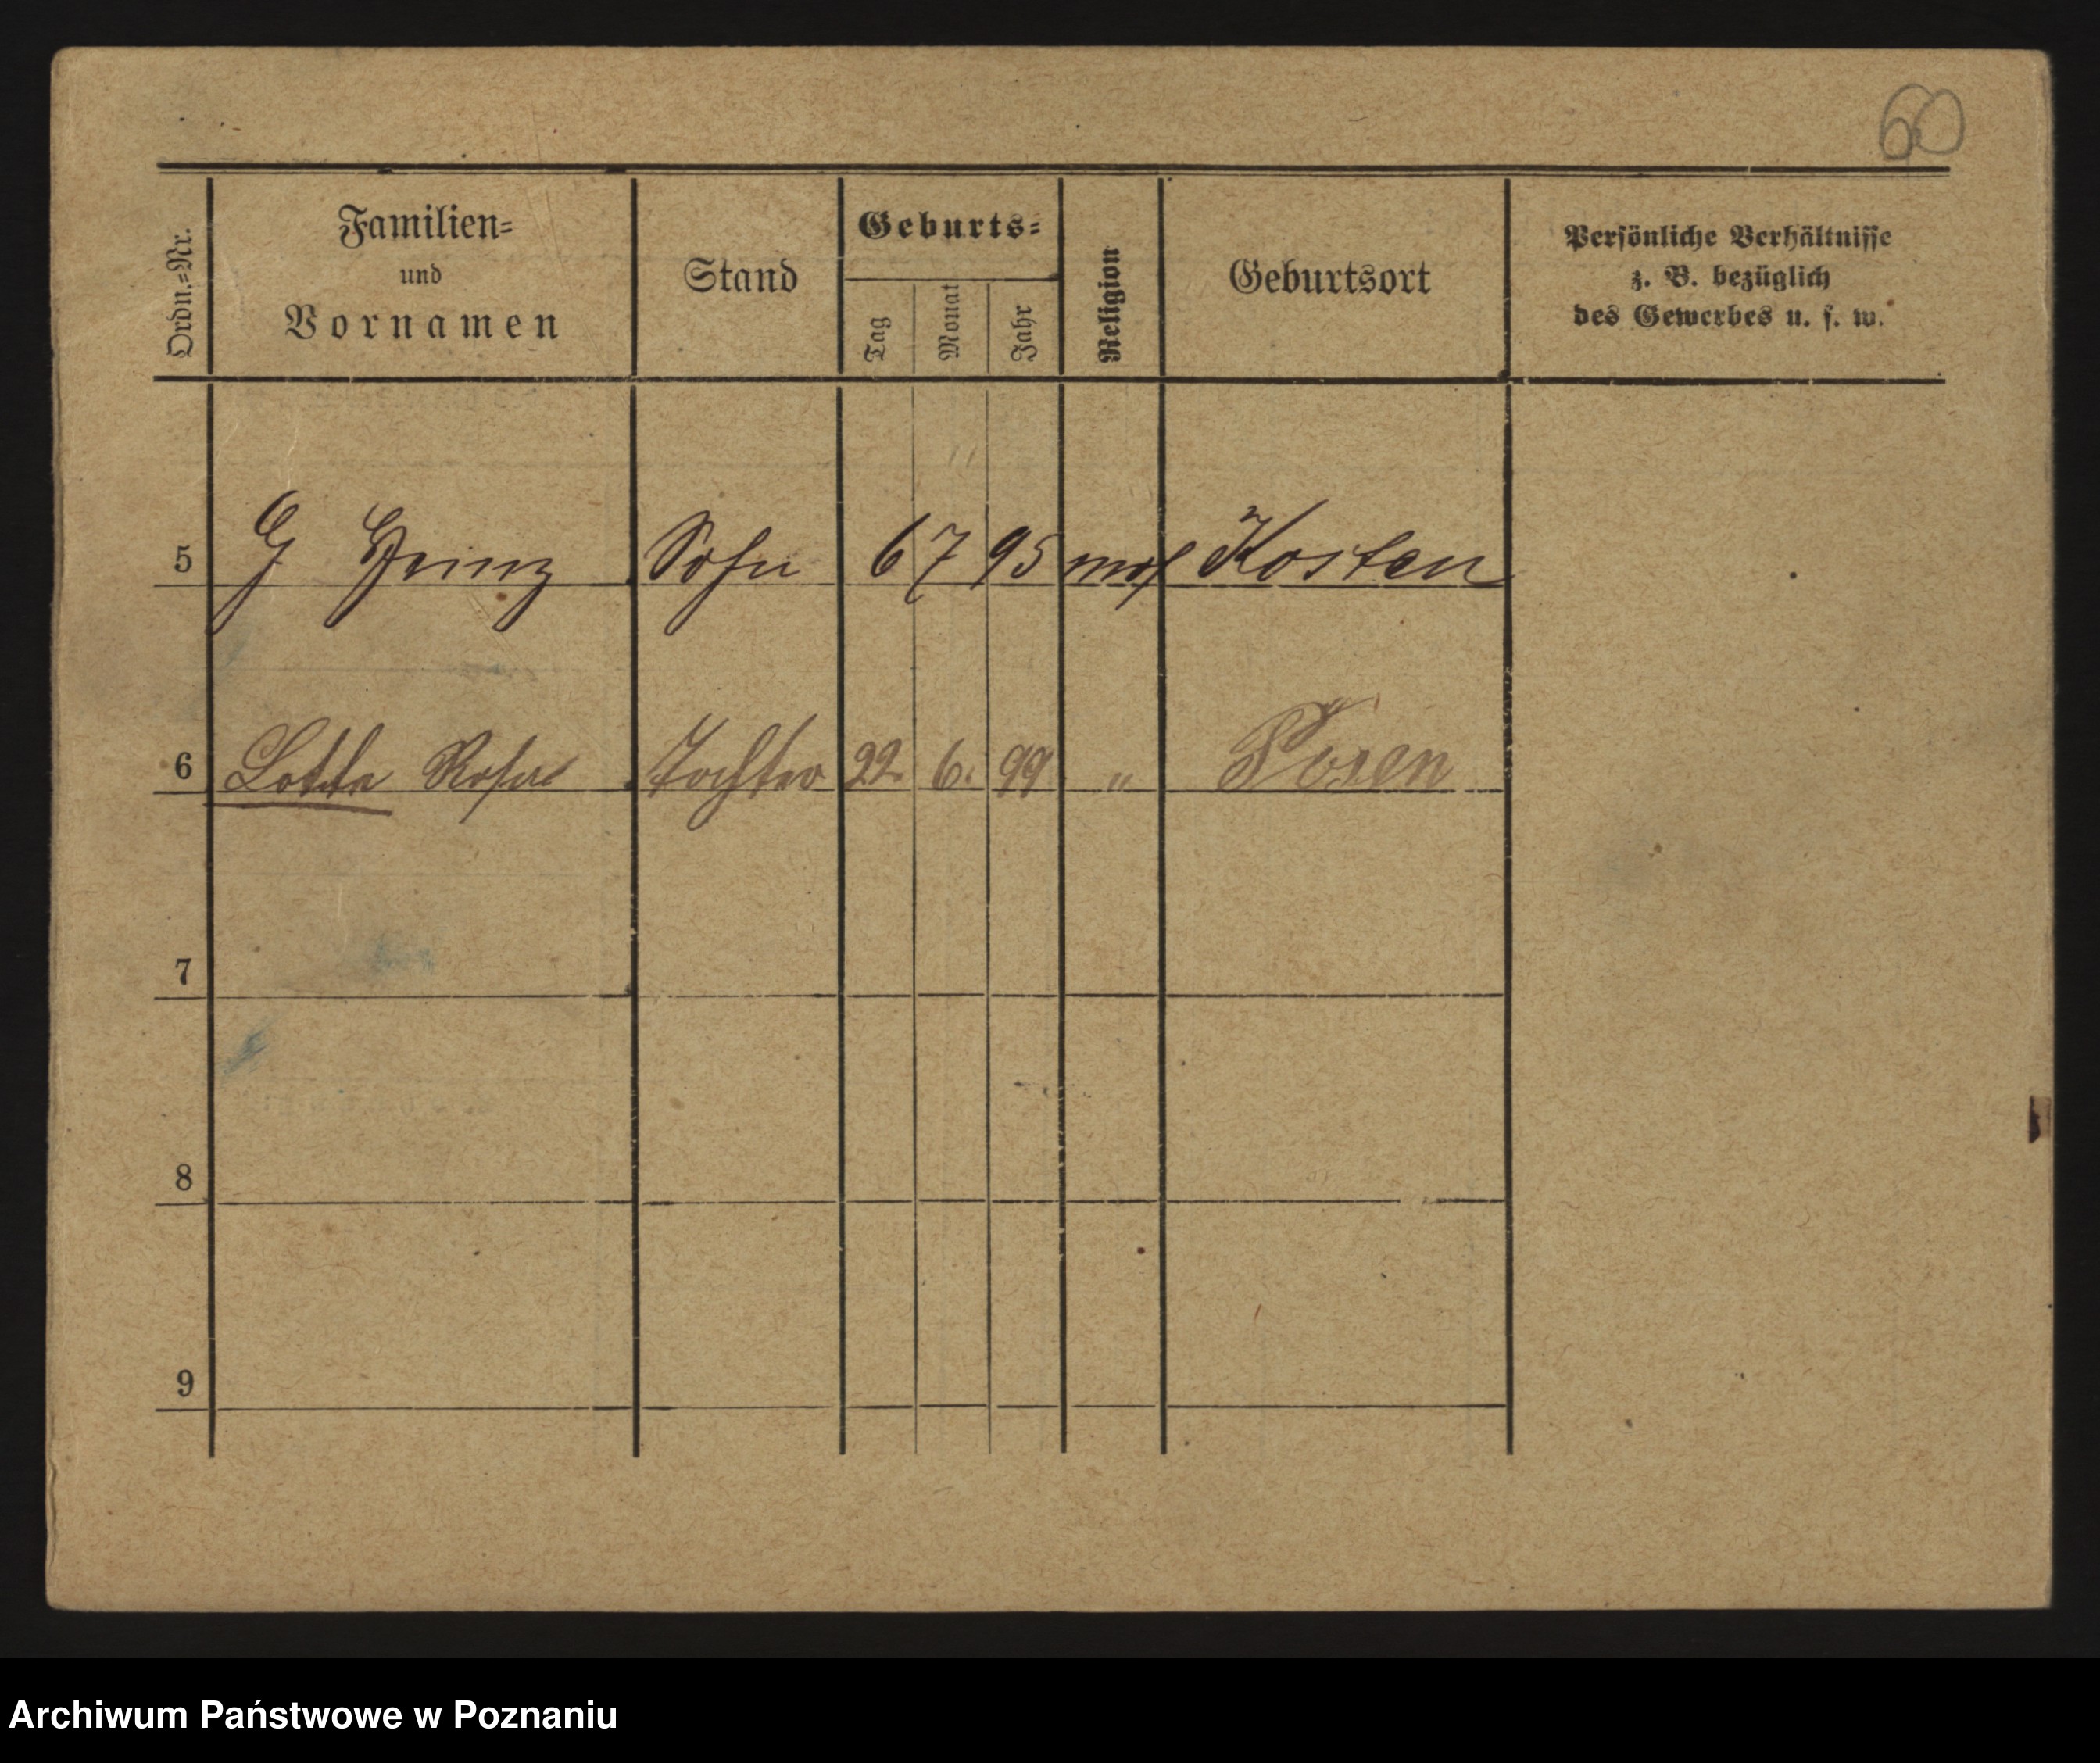 60
Ordn.=Nr.
Familien=
und
Vornamen
Stand
Geburts=
Tag
Monat
Jahr
Religion
Geburtsort
Persönliche Verhältnisse
z. B. bezüglich
des Gewerbes u. s. w.
5 Heinz Sohn 6 7 95 mos Kosten
6 Lotte Rosa Tochter 22. 6. 99 " Posen
7
8
9
Archiwum Państwowe w Poznaniu